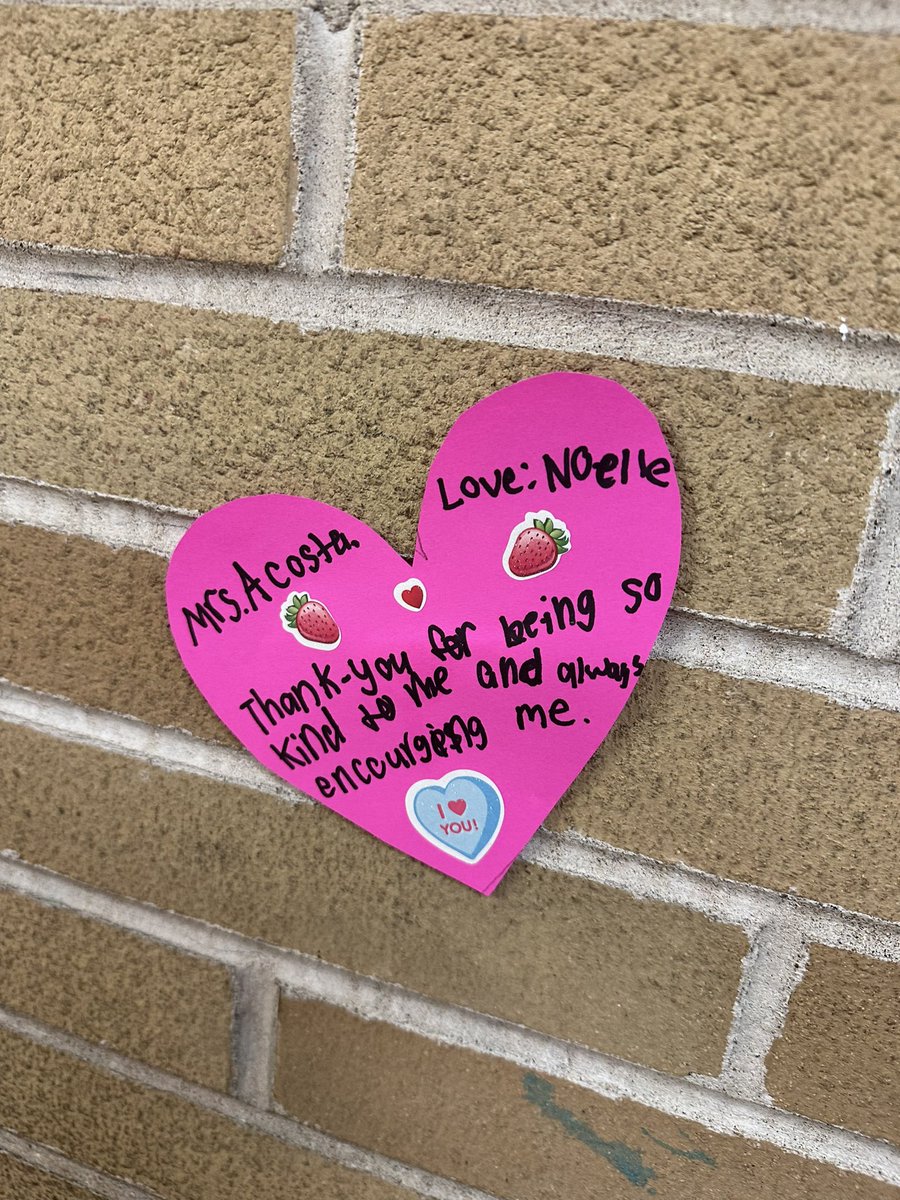 Mrs. Acosta.
Love: Noelle
Thank-you for being so
kind to me and always
encourging me.
I
YOU!